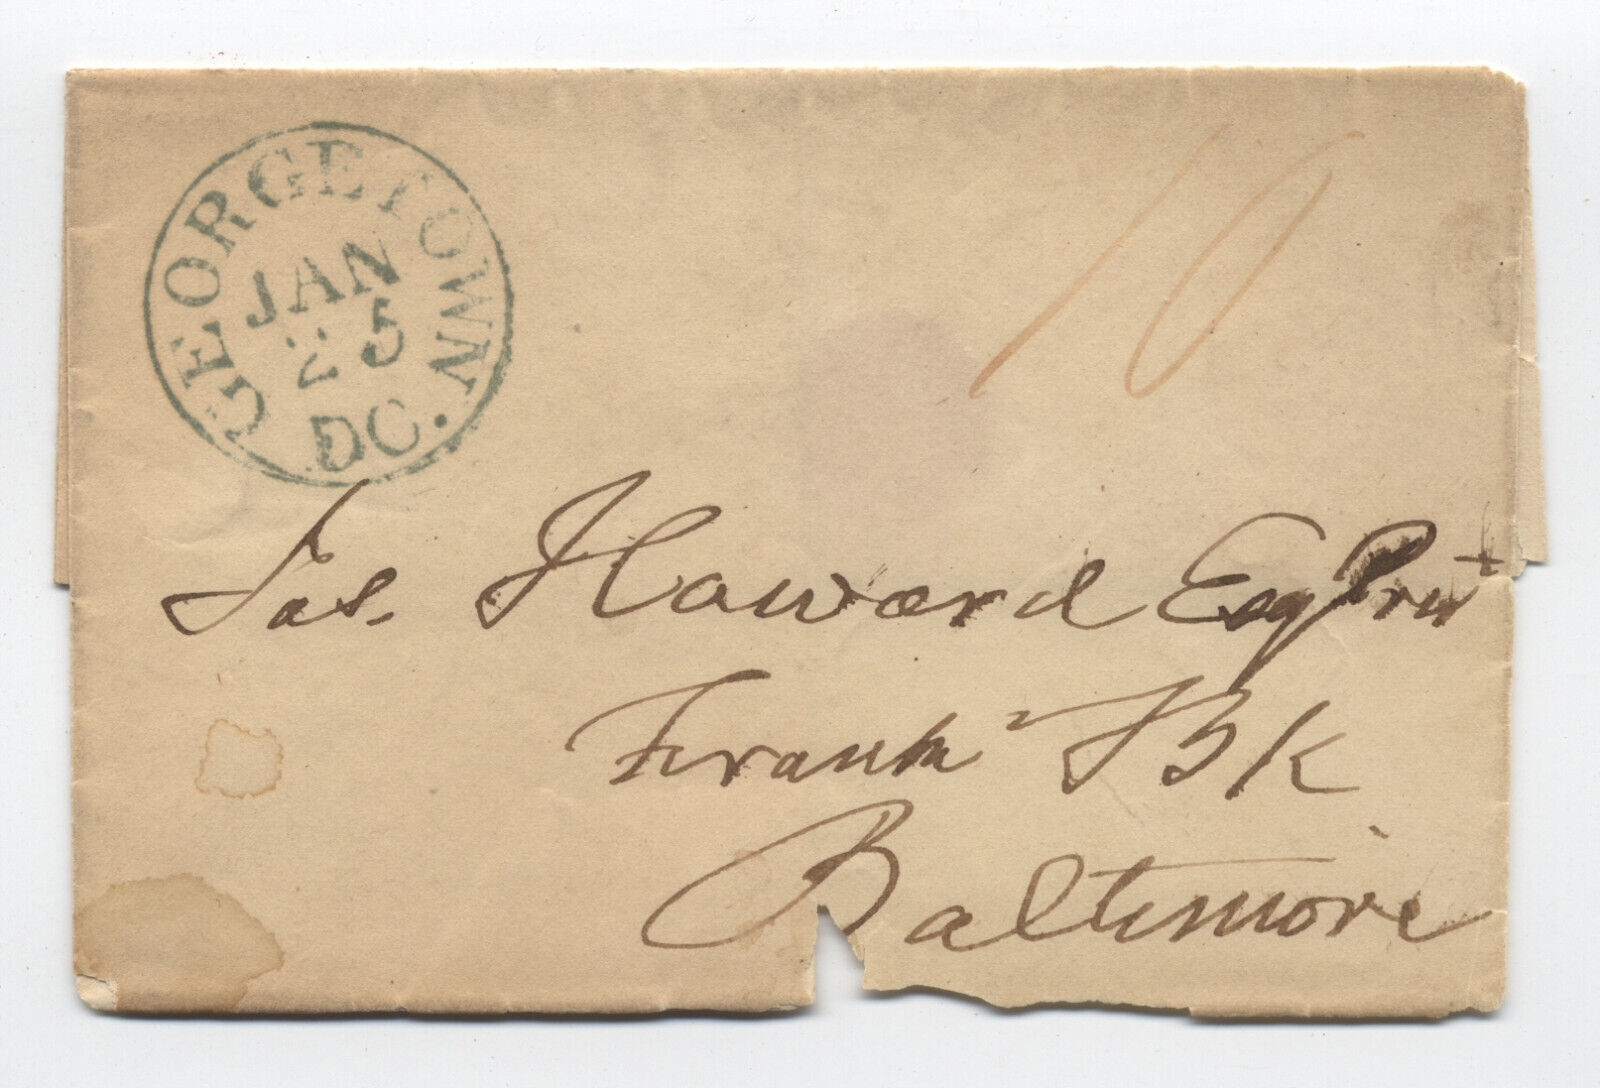 GEORGETOWN
JAN
25
DC.
10
Jas. Howard Esq Prest
Frank Bk
Baltimore